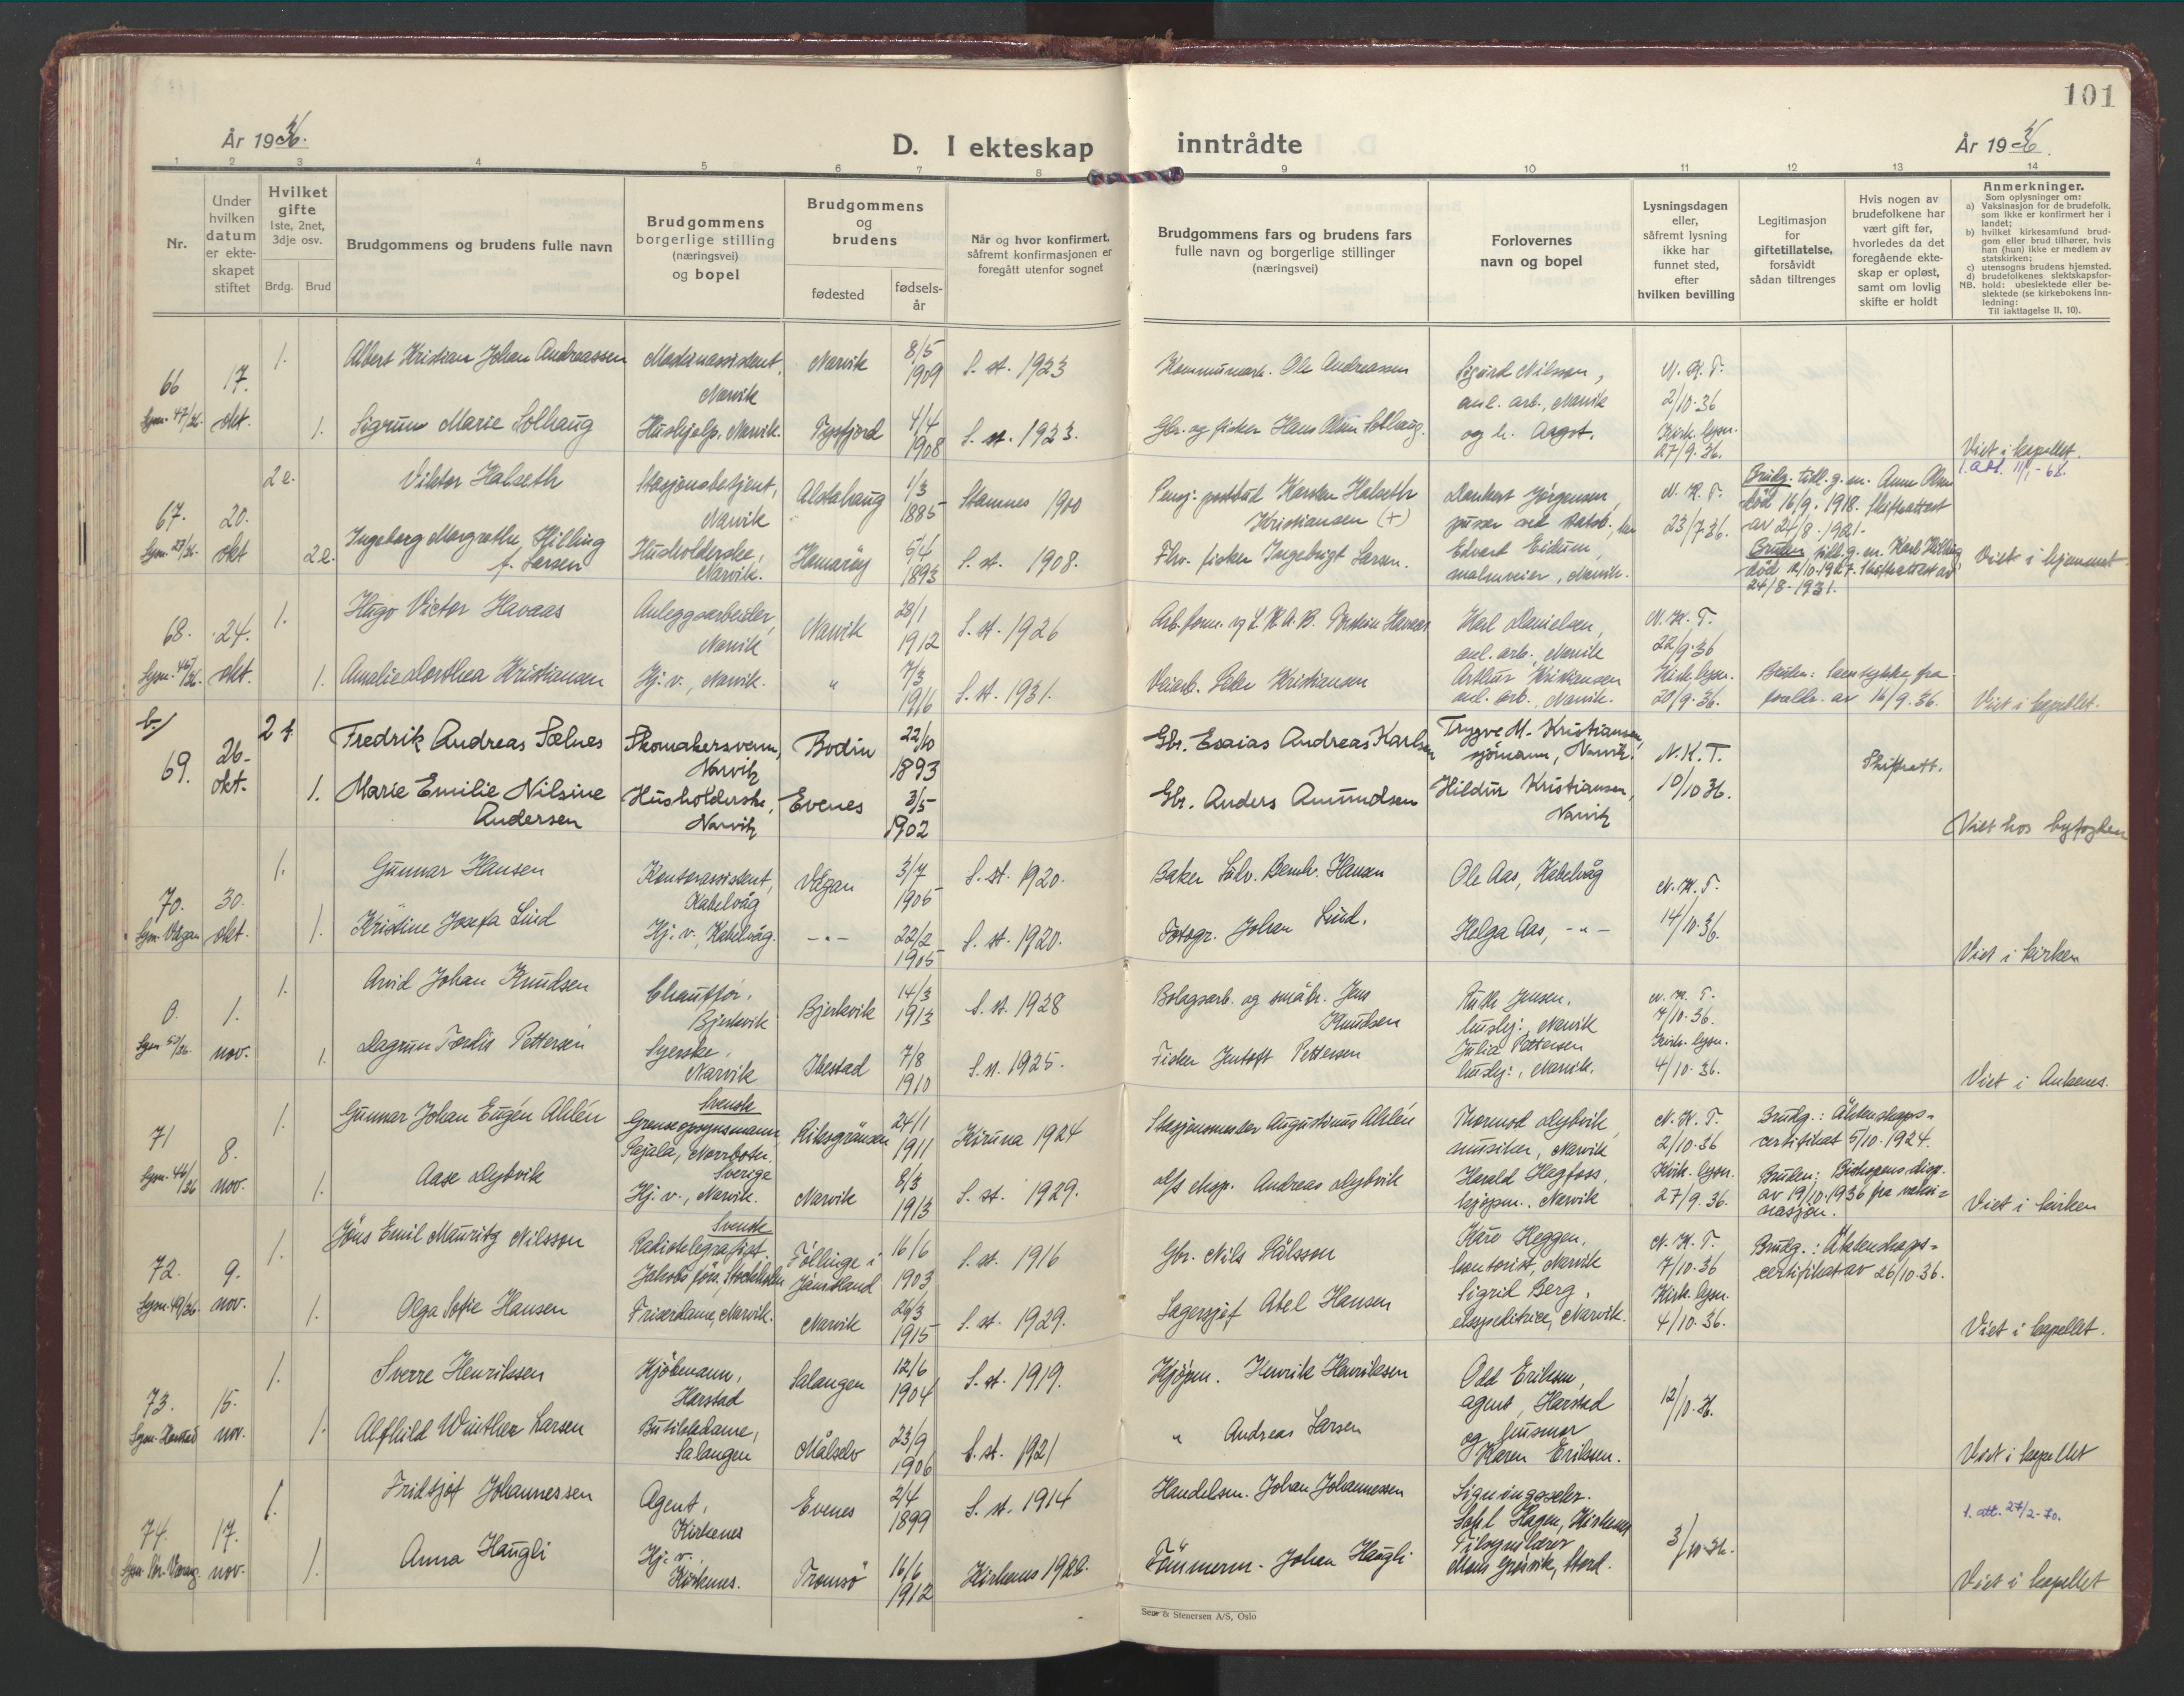 101
År 1936.
D. I ekteskap inntrådte
År 1936.
1 2 3 4 5 6 7 8 9 10 11 12 13 14
Nr.
Under hvilken datum er ekte-skapet stiftet
Hvilket gifte 1ste, 2net, 3dje osv.
Brdg. Brud
Brudgommens og brudens fulle navn
Brudgommens borgerlige stilling (næringsvei) og bopel
Brudgommens og brudens
fødested
fødsels-år
Når og hvor konfirmert, såfremt konfirmasjonen er foregått utenfor sognet
Brudgommens fars og brudens fars fulle navn og borgerlige stillinger (næringsvei)
Forlovernes navn og bopel
Lysningsdagen eller, såfremt lysning ikke har funnet sted, efter hvilken bevilling
Legitimasjon for giftetillatelse, forsåvidt sådan tiltrenges
Hvis nogen av brudefolkene har vært gift før, hvorledes da det foregående ekte-skap er opløst, samt om lovlig skifte er holdt
Anmerkninger.
Som oplysninger om:
a) Vaksinasjon for de brudefolk, som ikke er konfirmert her i landet;
b) hvilket kirkesamfund brud-gom eller brud tilhører, hvis han (hun) ikke er medlem av statskirken;
c) utensogns brudens hjemsted.
d) brudefolkenes slektskapsfor-hold: ubeslektede eller be-slektede (se kirkebokens inn-ledning:
NB.
Til iakttagelse II. 10).
66 17. okt. 1. Albert Kristian Johan Andreassen Maskinassistent, Narvik Narvik 8/5 1909 S. st. 1923 Kommunearb. Ole Andreassen Sigurd Nilsson, anl. arb., Narvik N. K. T. 2/10.36
Lysn. 47/36. 1. Sigrun Marie Solhaug Hushjelp, Narvik. Tysfjord 4/4 1908 S. st. 1923. Gbr. og fisker Hans Olsen Solhaug. og h. Aagot. Kirk. lysn. 27/9.36. Viet i kapellet.
67. 20. okt 2 e. Viktor Halseth Stasjonsbetjent, Narvik Alstahaug 1/3 1885 Stamnes 1900 Pensj. postbud Karsten Halseth Kristiansen (+) Dankert Jørgensen, pusser ved N. K. T. 23/7.36. Brudg. tidl. g. m. Anna Olsen død 16/9.1918. Skifteattest av 24/8.1921.
Lysn. 27/36. 2 e. Ingeborg Margrethe Hilling f. Larsen Husholderske, Narvik. Hamarøy 5/4 1893 S. st. 1908. Fhv. fisker Ingebrigt Larsen. Edvart Eidum, malmveier, Narvik. Bruden tidl. g. m. Karl Hilling død 12/10.1927. Skifteattest av 24/8.1931. Viet i hjemmet
68. 24. okt. 1. Hugo Victor Havaas Anleggsarbeider, Narvik Narvik 28/1 1912 S. st. 1926 Karl Danielsen, anl. arb., Narvik N. K. T. 22/9.36
1. Amalie Dorthea Kristiansen Hj. v., Narvik. " 7/3 1916 S. st. 1931. Veiarb. Peder Kristiansen Arthur Kristiansen anl. arb., Narvik. Kirk. lysn. 20/9.36. Bruden: Samtykke fra foreldr. av 16/9.36. Viet i kapellet.
b.)
69. 26. okt. 2 Fredrik Andreas Sælnes Skomakersvenn, Narvik Bodin 22/10 1893 Gbr. Esaias Andreas Karlsen Trygve M. Kristiansen, sjömann, Narvik. N. K. T. 10/10 36. Skifteatt.
1. Marie Emilie Nilsine Andersen Husholderske, Narvik Evenes 3/5 1902 Gbr. Anders Amundsen Hildur Kristiansen, Narvik Viet hos byfogden
70. 30. okt. 1. Gunnar Hansen Kontorassistent, Kabelvåg Vågan 3/7 1905 S. st. 1920. Baker Edv. Bernh. Hansen Ole Aas, Kabelvåg N. K. T. 14/10.36.
Lysn. Vågan 1. Kristine Josefa Lind Hj. v., Kabelvåg. -"- 22/2 1905 S. st. 1920. Fotogr. Johan Lind. Helga Aas, -"- Viet i kirken
0. 1. nov. 1. Arvid Johan Knudsen Chauffør, Bjerkvik Bjerkvik 14/3 1913 S. st. 1928 Bolagsarb. og småbr. Jens Knudsen Ruth Jensen, huslej., Narvik N. K. T. 7/10.36.
1. Dagrun Tordis Pettersen Syerske, Narvik Ibestad 7/8 1910 S. st. 1925. Fisker Jentoft Pettersen Julia Pettersen huslej., Narvik. Kirk. lysn. 4/10.36. Viet i Ankenes.
71 8. nov. 1. Gunnar Johan Eugén Ahlén Svensk Grenseopsynsmann Pajala, Norrbotn. Sverige Riksgränsen 24/1 1911 Kiruna 1924 Stasjonsmester Augustinus Ahlén Thormod Dybvik, musiker, Narvik N. K. T. 2/10.36 Brudg.: Äktenskaps-certifikat 5/10.1924.
1. Aase Dybvik Hj. v., Narvik. Narvik 8/3 1913 S. st. 1929. Andreas Dybvik Harald Hegfoss, kjøpm., Narvik Kirk. lysn. 27/9.36. Bruden: Biskopens disp. av 19/10.1936 fra vaksi-nasjon. Viet i kirken
72. 9. nov. 1. Jöns Emil Mauritz Nilsson Svensk Radiotelegrafist. Jakobs förs. Stockholm Föllinge i Jämtland 16/6 1903 S. st. 1916 Gbr. Nils Pålsson Kåre Heggen, kontorist, Narvik N. K. T. 7/10.36 Brudg.: Äktenskaps-certifikat av 26/10.36.
Lysn. 49/36. 1. Olga Sofie Hansen Friserdame, Narvik. Narvik 26/3 1915 S. st. 1929. Lagersjef Abel Hansen Sigrid Berg, ekspeditrice, Narvik. Kirk. lysn. 4/10.36. Viet i kapellet.
73. 15. nov. 1. Sverre Henrikssen Kjöbmann, Harstad Salangen 12/6 1904 S. st. 1919. Kjöpm. Henrik Henriksen Odd Eriksen, agent, Harstad 12/10.36.
Lysn. Harstad 1. Alfhild Winther Larsen Butikkdame, Salangen Målselv 23/9 1906 S. st. 1921 " Andreas Larsen og husmor Karen Eriksen. Viet i kapellet
74. 17. nov. 1. Fridtjof Johannessen Agent, Kirkenes Evenes 2/4 1899 S. st. 1914 Handelsm. Johan Johannessen Hagen, Kirkenes 3/10.36. 1. att. 27/2-70.
Lysn. Sør-Varang. 1. Anna Haugli Hj. v. Kirkenes. Tromsø 16/6 1912 Tömmerm. Johan Haugli Viet i kapellet
Sem & Stenersen A/S, Oslo